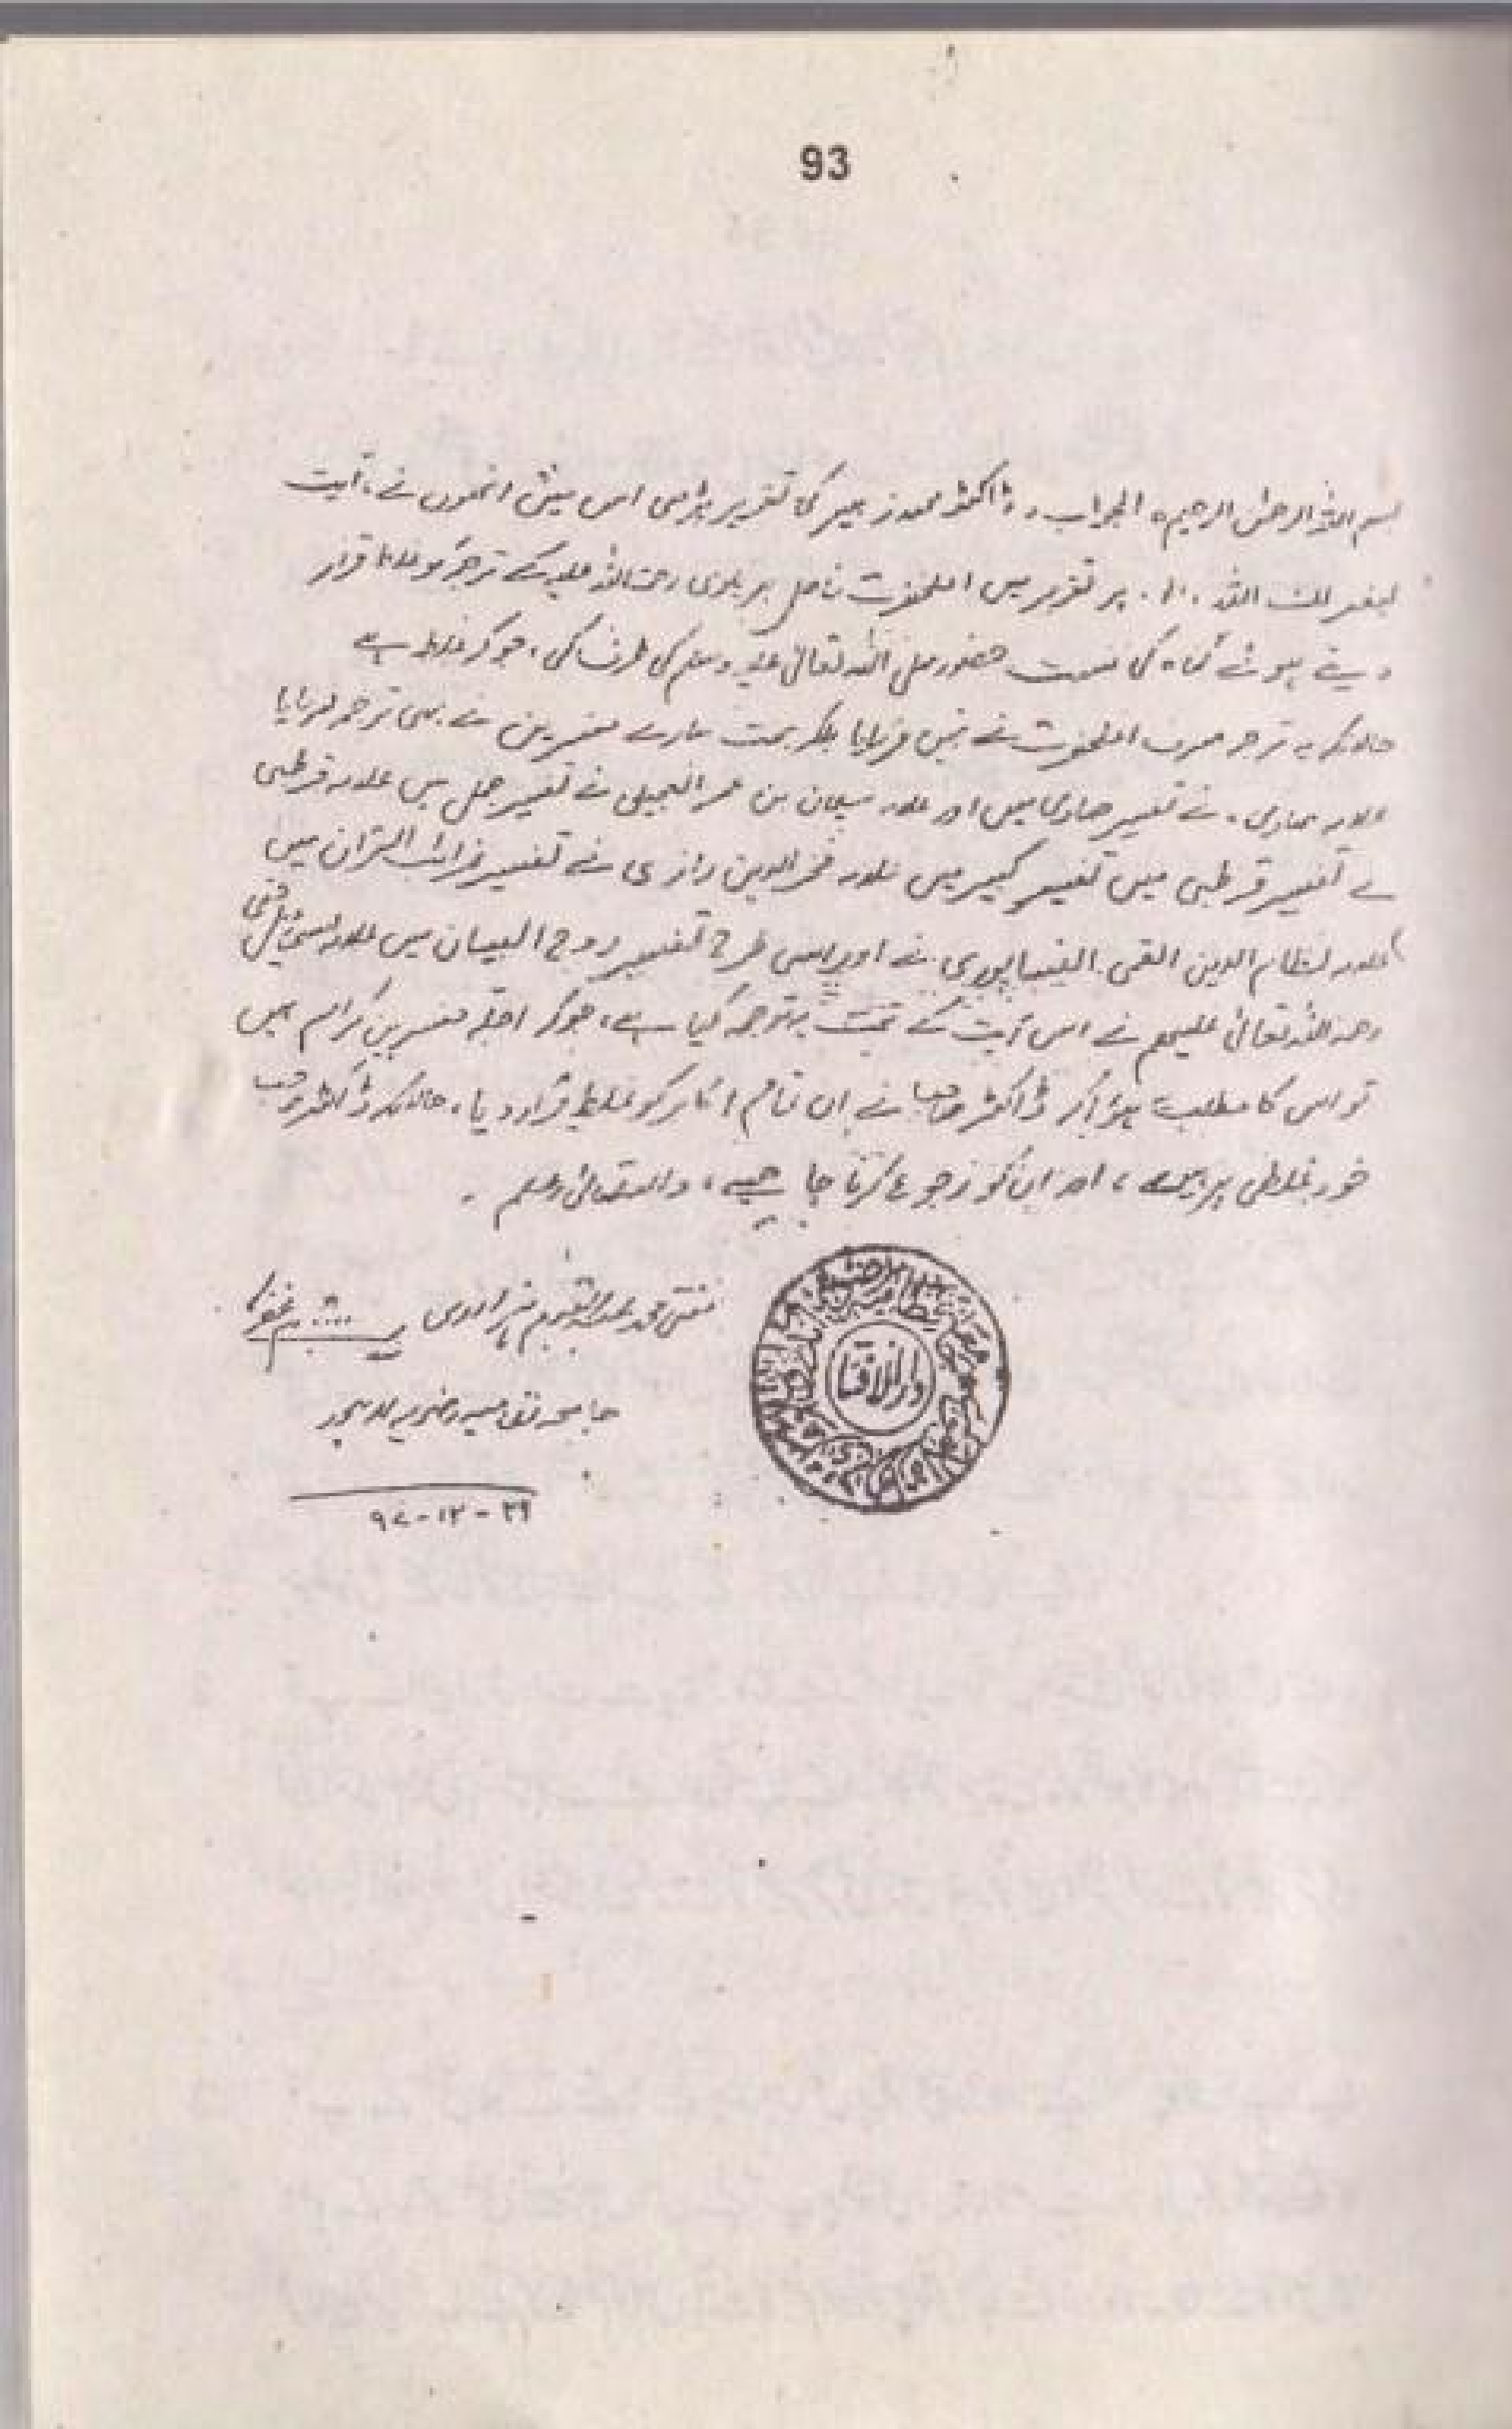 93
بسم اللہ الرحمن الرحیم، الجواب، ڈاکٹر محمد زبیر کی تقریر پڑھی اس میں انھوں نے، آیت
لیغفرلک اللہ ۔الخ۔ پر تقریر میں اعلحضرت فاضل بریلوی رحمۃ اللہ علیہ کے ترجمہ کو غلط قرار
دیتے ہوئے گناہ کی نسبت حضور صلی اللہ تعالیٰ علیہ وسلم کی طرف کی، جو کہ غلط ہے
حالانکہ یہ ترجمہ صرف اعلحضرت نے نہیں فرمایا بلکہ بہت سارے مفسرین نے یہی ترجمہ فرمایا
علامہ صاوی، نے تفسیر صاوی میں اور علامہ سلیمان بن عمر العجیلی نے تفسیر جمل میں علامہ قرطبی
نے تفسیر قرطبی میں تفسیر کبیر میں علامہ فخر الدین رازی نے تفسیر غرائب القران میں
علامہ نظام الدین القمی النیسابوری نے اور اسی طرح تفسیر روح البیان میں علامہ اسمٰعیل حقی
رحمۃ اللہ تعالیٰ علیھم نے اس آیت کے تحت یہ ترجمہ کیا ہے، جو کہ اجلّہ مفسرین کرام ہیں
تو اس کا مطلب ہوا کہ ڈاکٹر صاحب نے ان تمام اکابر کو غلط قرار دیا، حالانکہ ڈاکٹر صاحب
خود غلطی پر ہیں، اور ان کو رجوع کرنا چاہیے، واللہ تعالیٰ اعلم ۔
مفتی محمد عبدالقیوم ہزاروی غفرلہ
جامعہ نظامیہ رضویہ لاہور
۲۹-۱۲-۹۷
دارالافتا